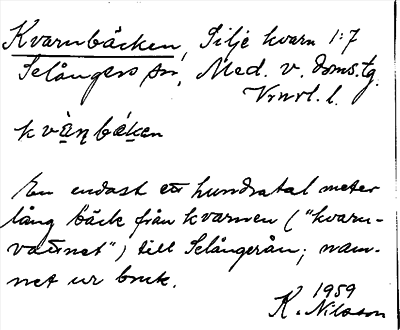 Kvarnbäcken, Silje kvarn 1:7
Selångers sn, Med. v. doms.tg.
Vrnrl. l.
kvàṇbäken
En endast ett hundratal meter
lång bäck från kvarnen ("kvarn-
vattnet") till Selångerån; nam-
net ur bruk.
1959
K. Nilsson